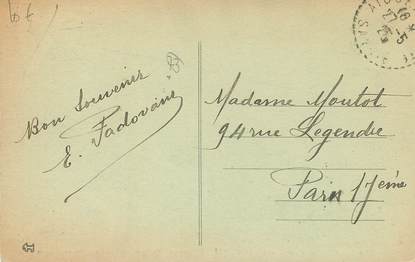 Bon Souvenir
E. Padovani
Madame Moutot
94 rue Legendre
Paris 17ème